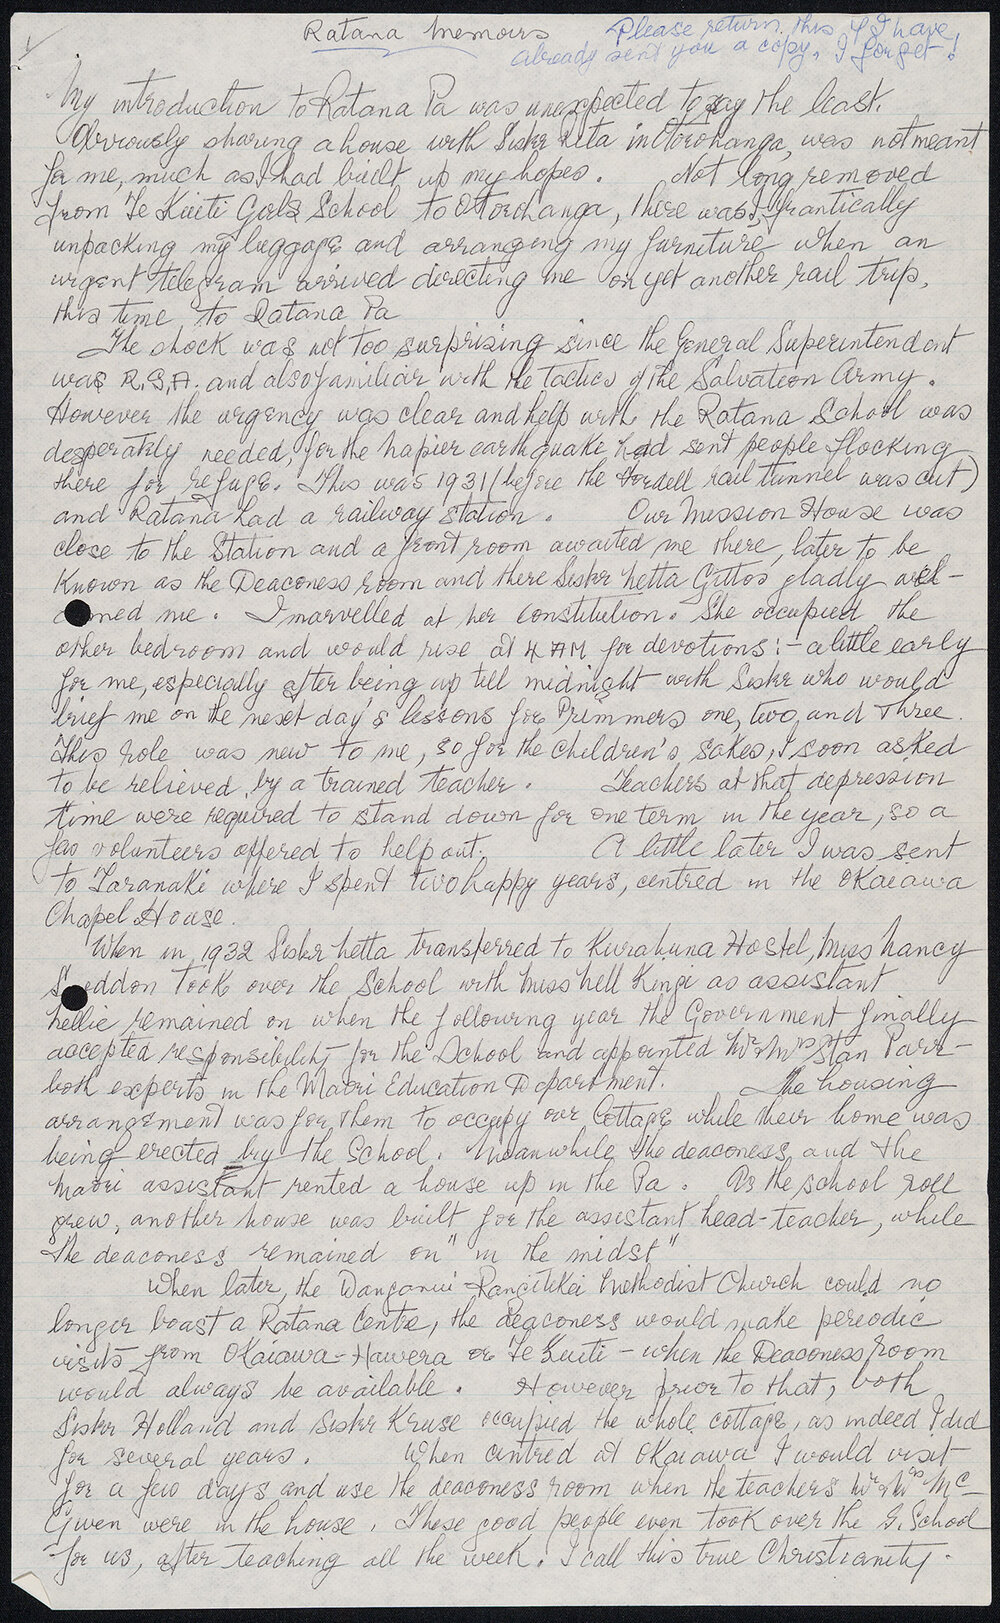 1
Ratana Memoirs
Please return this if I have
already sent you a copy, I forget!
My introduction to Ratana Pa was unexpected to say the least.
Obviously sharing a house with Sister Rita in Otorohanga, was not meant
for me, much as I had built up my hopes. Not long removed
from Te Kuiti Girls School to Otorohanga, there was I, frantically
unpacking my luggage and arranging my furniture when an
urgent telegram arrived directing me on yet another rail trip,
this time to Ratana Pa
The shock was not too surprising since the General Superintendent
was R.S.A. and also familiar with the tactics of the Salvation Army.
However the urgency was clear and help with the Ratana School was
desperately needed, for the Napier earthquake had sent people flocking
there for refuge. This was 1931 (before the Fordell rail tunnel was cut)
and Ratana had a railway station. Our Mission House was
close to the Station and a front room awaited me there, later to be
known as the Deaconess room and there Sister Netta Gittos gladly wel-
comed me. I marvelled at her constitution. She occupied the
other bedroom and would rise at 4 AM for devotions:- a little early
for me, especially after being up till midnight with Sister who would
brief me on the next day's lessons for Primmers one, two, and three.
This role was new to me, so for the children's sakes, I soon asked
to be relieved by a trained teacher. Teachers at that depression
time were required to stand down for one term in the year, so a
few volunteers offered to help out. A little later I was sent
to Taranaki where I spent two happy years, centred in the Okaiawa
Chapel House.
When in 1932 Sister Netta transferred to Kurahuna Hostel, Miss Nancy
Sneddon took over the School with Miss Nell Kingi as assistant
Nellie remained on when the following year the Government finally
accepted responsibility for the School and appointed Mr & Mrs Stan Parr-
both experts in the Maori Education Department. The housing
arrangement was for them to occupy our Cottage while their home was
being erected by the School. Meanwhile the deaconess and the
Maori assistant rented a house up in the Pa. As the school roll
grew, another house was built for the assistant head-teacher, while
the deaconess remained on "in the midst"
When later, the Wanganui Rangitikei Methodist Church could no
longer boast a Ratana Centre, the deaconess would make periodic
visits from Okaiawa-Hawera or Te Kuiti - when the Deaconess Room
would always be available. However prior to that, both
Sister Holland and Sister Kruse occupied the whole cottage, as indeed I did
for several years. When centred at Okaiawa I would visit
for a few days and use the deaconess room when the teachers Mr & Mrs Mc-
Given were in the house. These good people even took over the S. School
for us, after teaching all the week. I call this true Christianity.